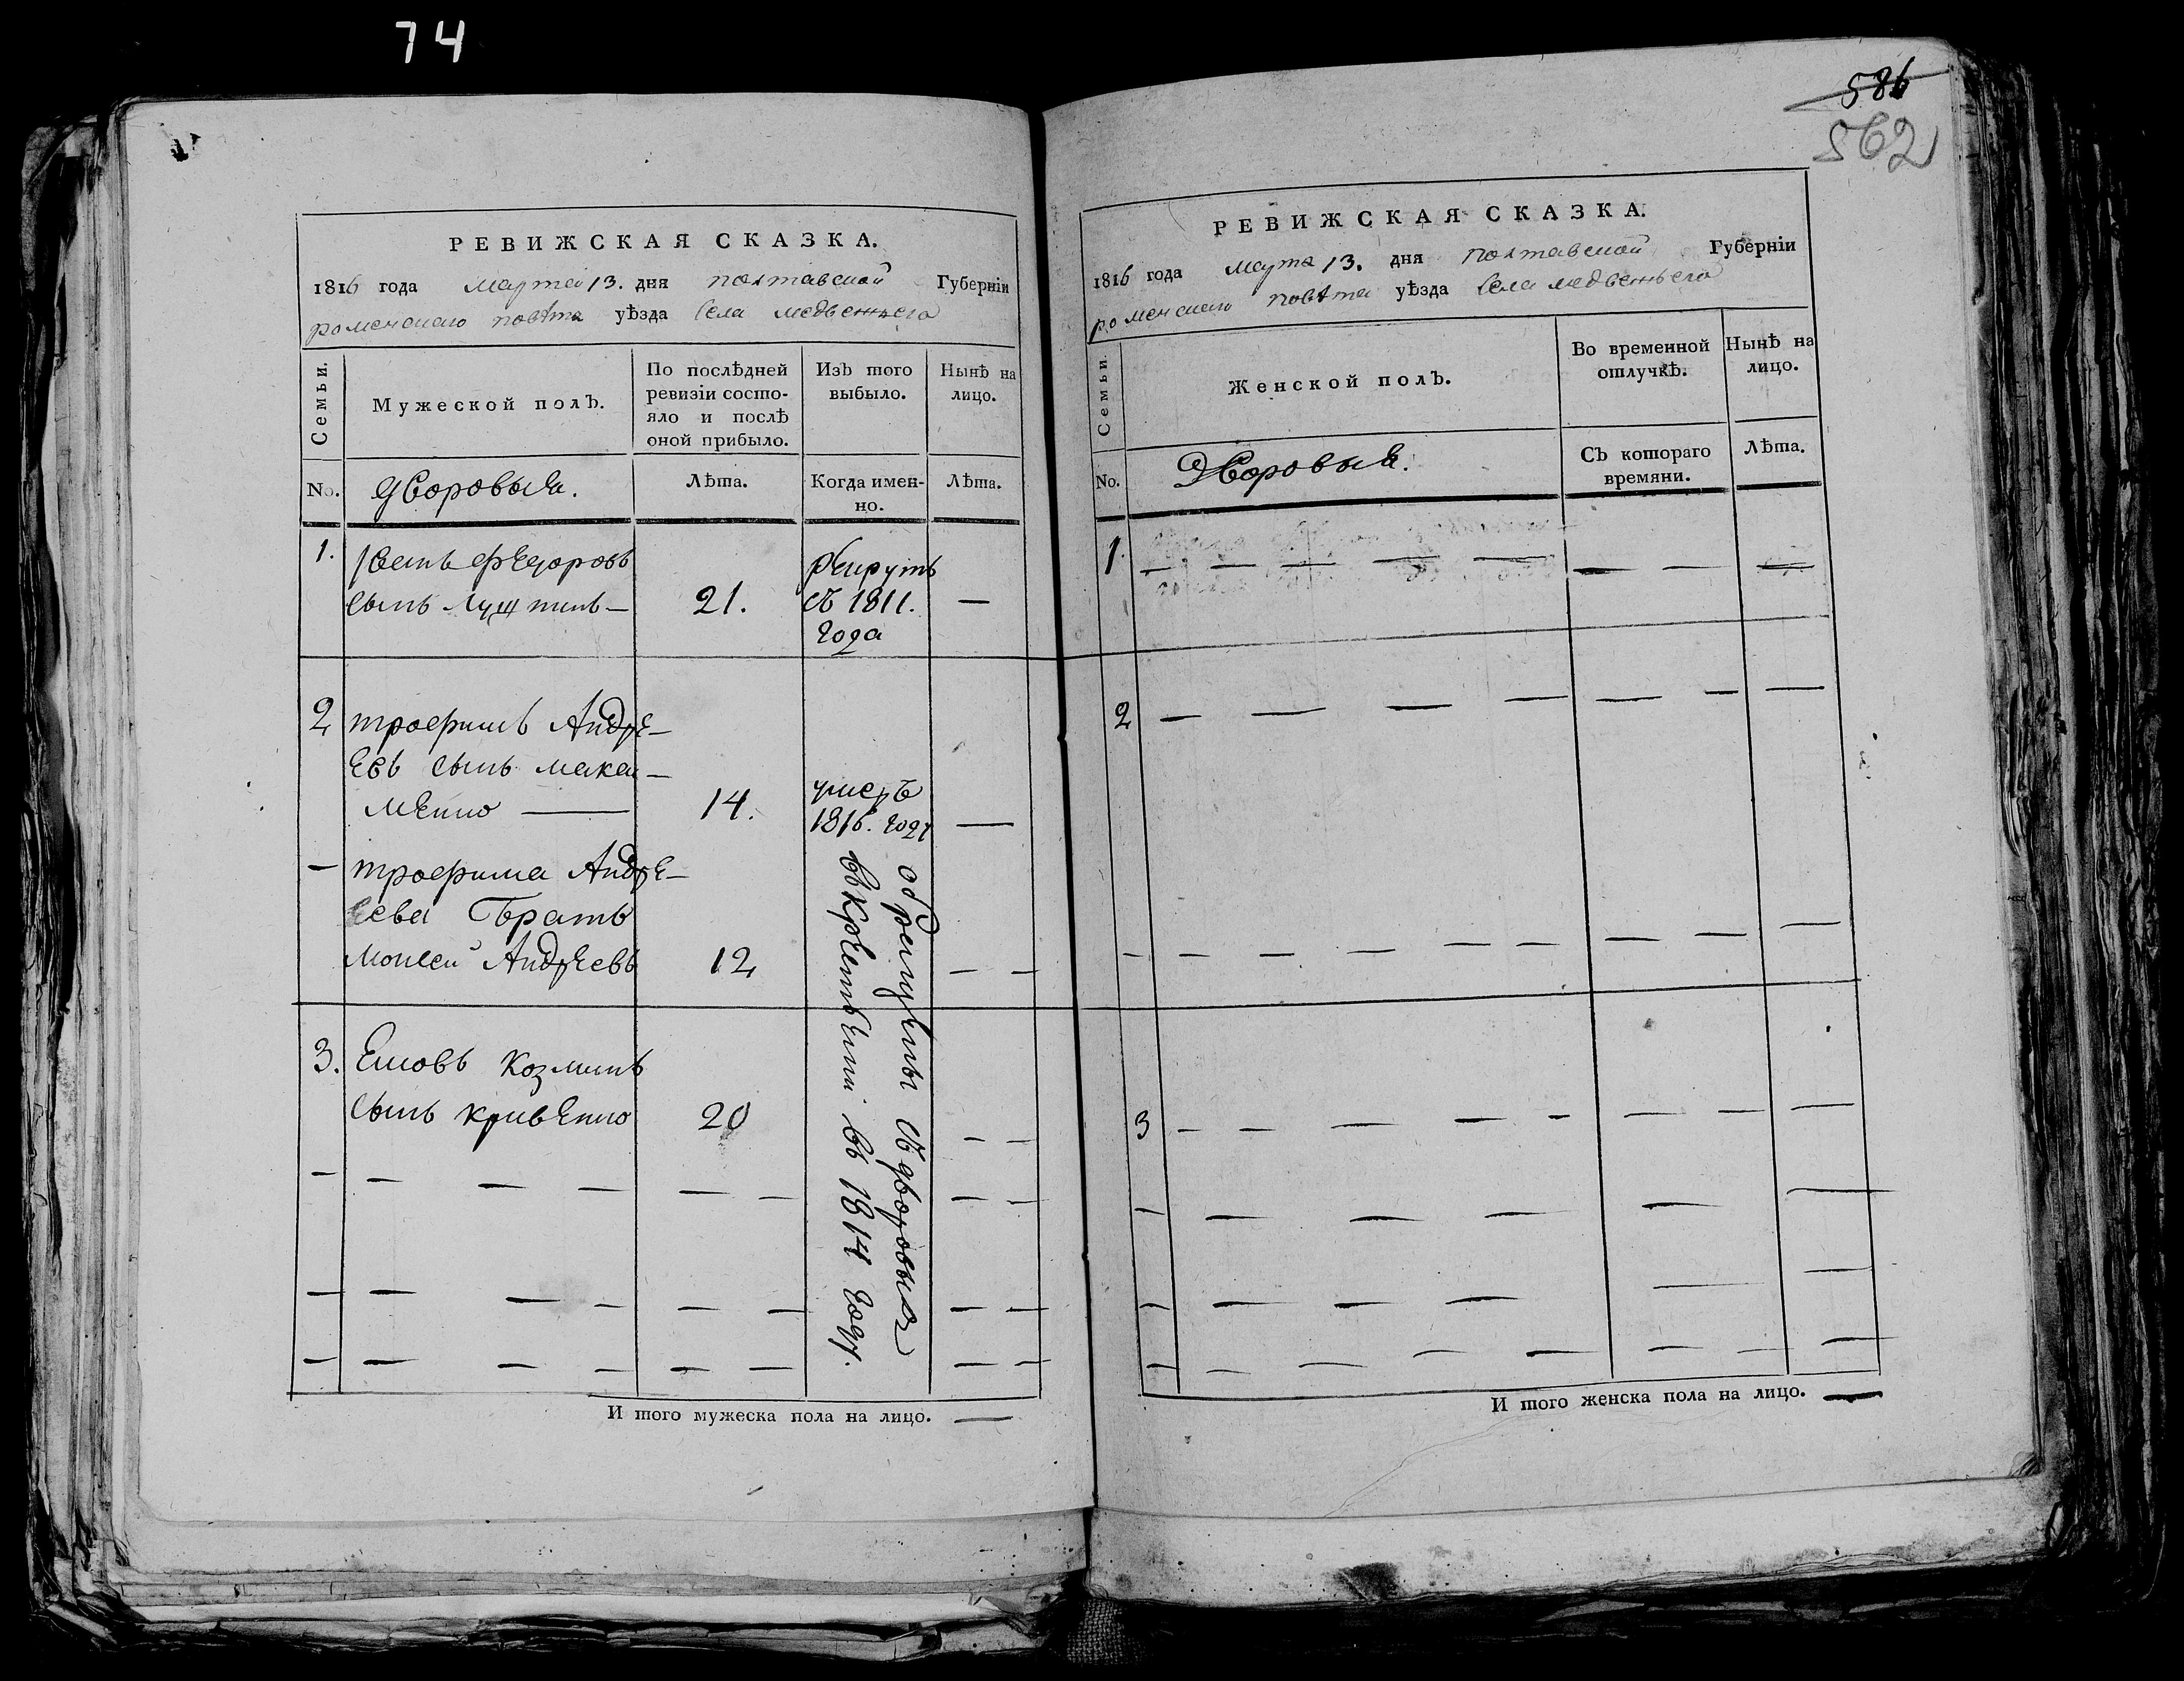 74
РЕВИЖСКАЯ СКАЗКА.
1816 года марта 13. дня полтавской Губерніи
роменскаго повѣта уѣзда села медвежьего
Семьи.
Мужеской полЪ.
По послѣдней
ревизіи состо-
яло и послѣ
оной прибыло.
ИзЪ того
выбыло.
Нынѣ на
лицо.
No.
дворовыя.
Лѣта.
Когда имен-
но.
Лѣта.
1.
Федоровъ
сынъ
21.
рекрутъ
съ 1811.
года
—
2
трофимъ Андре-
евъ сынъ
14.
умеръ
1816. году
—
— трофима Андре-
еева братъ
моисей Андреевъ
12
— —
3. Яковъ козминъ
сынъ кривенко
20
— —
обращены съ дворовыхъ
въ 1814 году.
И того мужеска пола на лицо. —
586
562
РЕВИЖСКАЯ СКАЗКА.
1816 года марта 13. дня полтавской Губерніи
роменскаго повѣта уѣзда села медвежьего
Семьи.
Женской полЪ.
Во временной
отлучкѣ.
Нынѣ на
лицо.
No.
Дворовыя.
СЪ котораго
времяни.
Лѣта.
1.
2
3
И того женска пола на лицо. —